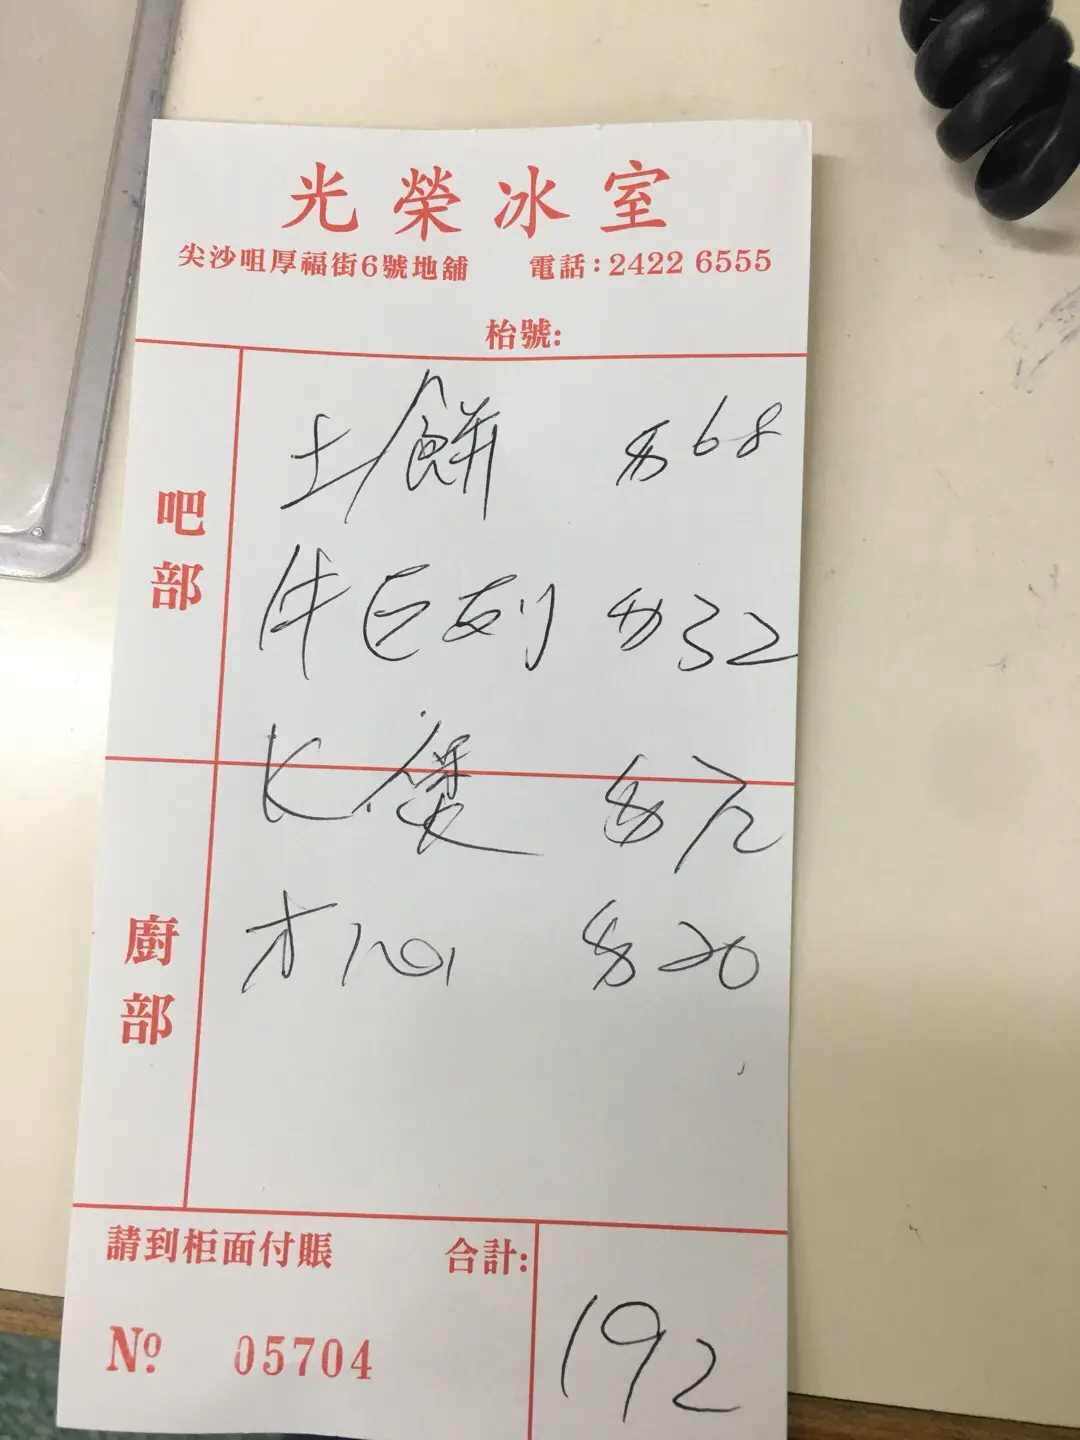 光榮冰室
尖沙咀厚福街6號地舖 電話:2422 6555
枱號:
吧部
土/餅 $68
牛 $32
$72
$20
廚部
請到柜面付賬 合計: 192
Nº 05704